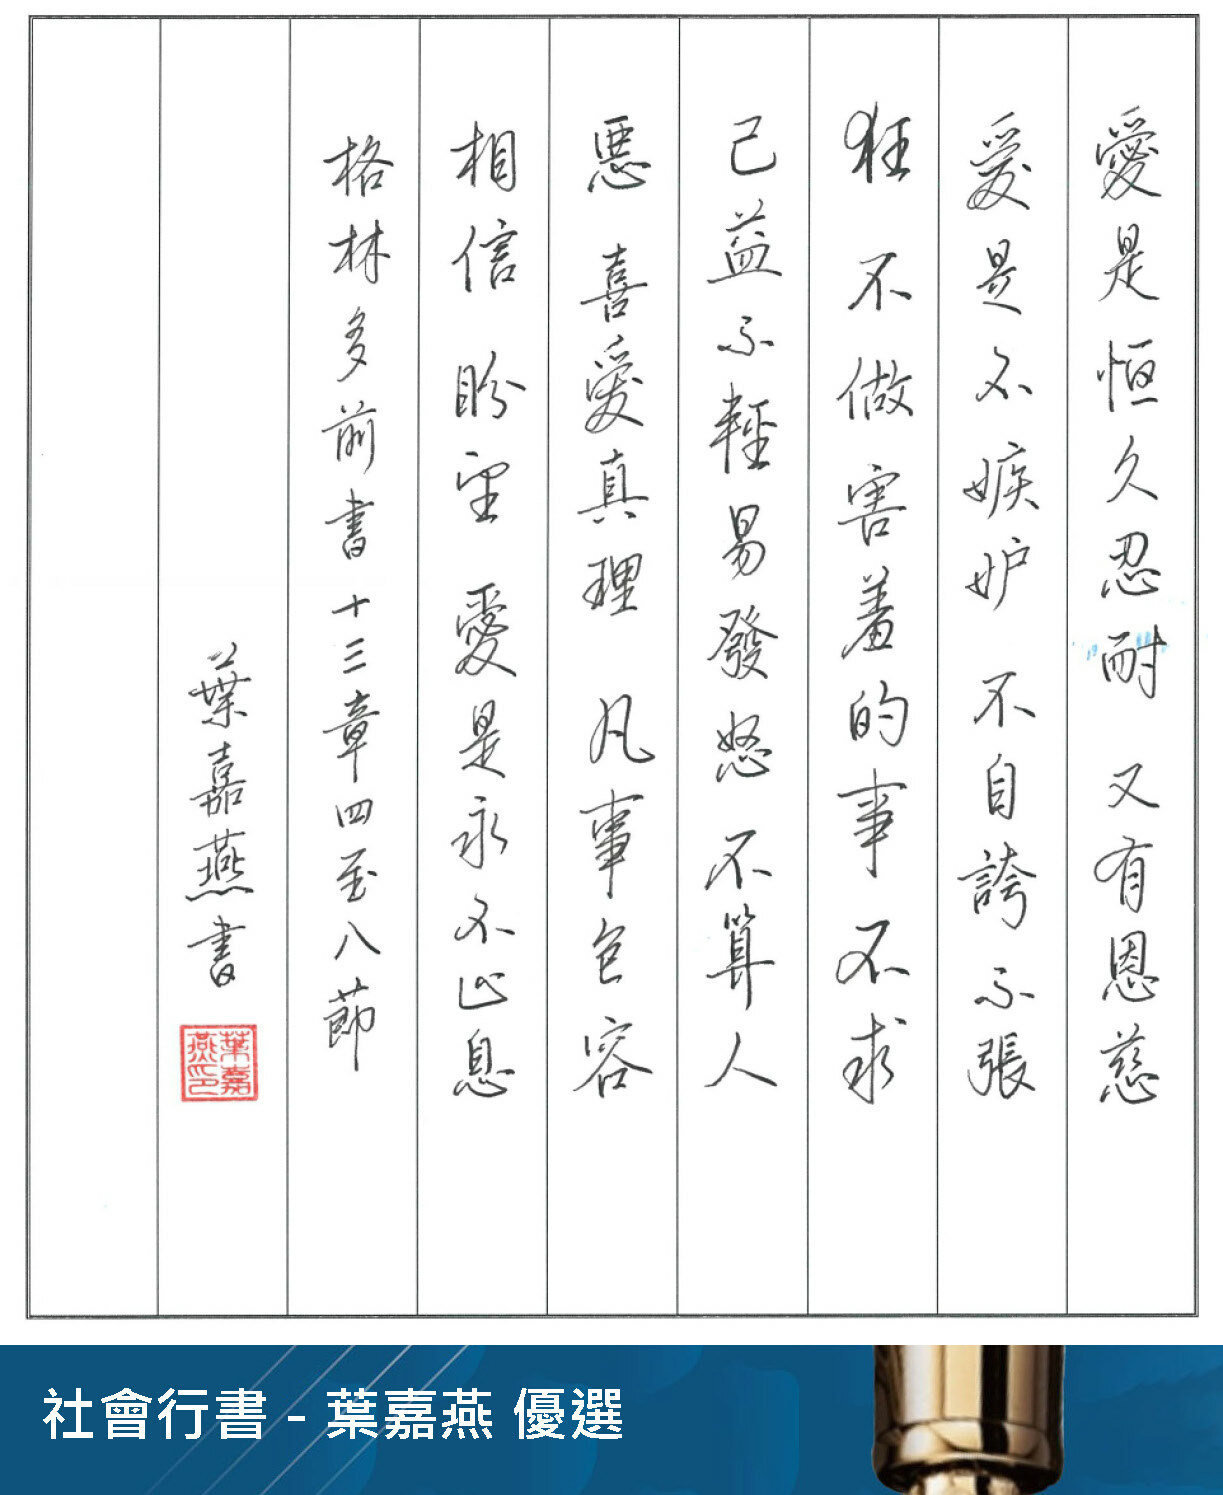 愛是恒久忍耐 又有恩慈
愛是不嫉妒 不自誇不張
狂 不做害羞的事不求
己益不輕易發怒 不算人
惡 喜愛真理 凡事包容
相信 盼望 愛是永不止息
格林多前書十三章四至八節
葉嘉燕書
葉嘉
燕印
社會行書 - 葉嘉燕 優選